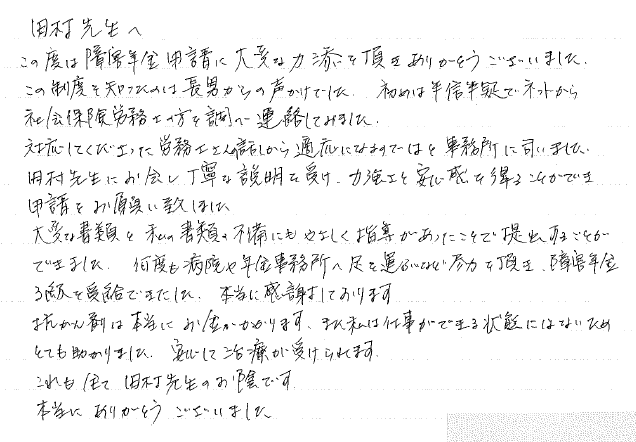 田村先生へ
この度は障害年金申請に大変な力添えを頂きありがとうございました。
この制度を知ったのは長男からの声かけでした。初めは半信半疑でネットから
社会保険労務士の方を調べ連絡してみました。
対応してくださった労務士さんの話しから適応になるのではと事務所に伺いました。
田村先生にお会いし丁寧な説明を受け、力強さと安心感を得ることができ
申請をお願い致しました
大変な書類と私の書類の不備にもやさしく指導があったことで提出することが
できました。何度も病院や年金事務所へ足を運ぶなど尽力を頂き、障害年金
3級を受給できました。本当に感謝しております
抗がん剤は本当にお金がかかります、また私は仕事ができる状態にはないため
とても助かりました。安心して治療が受けられます。
これも全て田村先生のお陰です
本当にありがとうございました